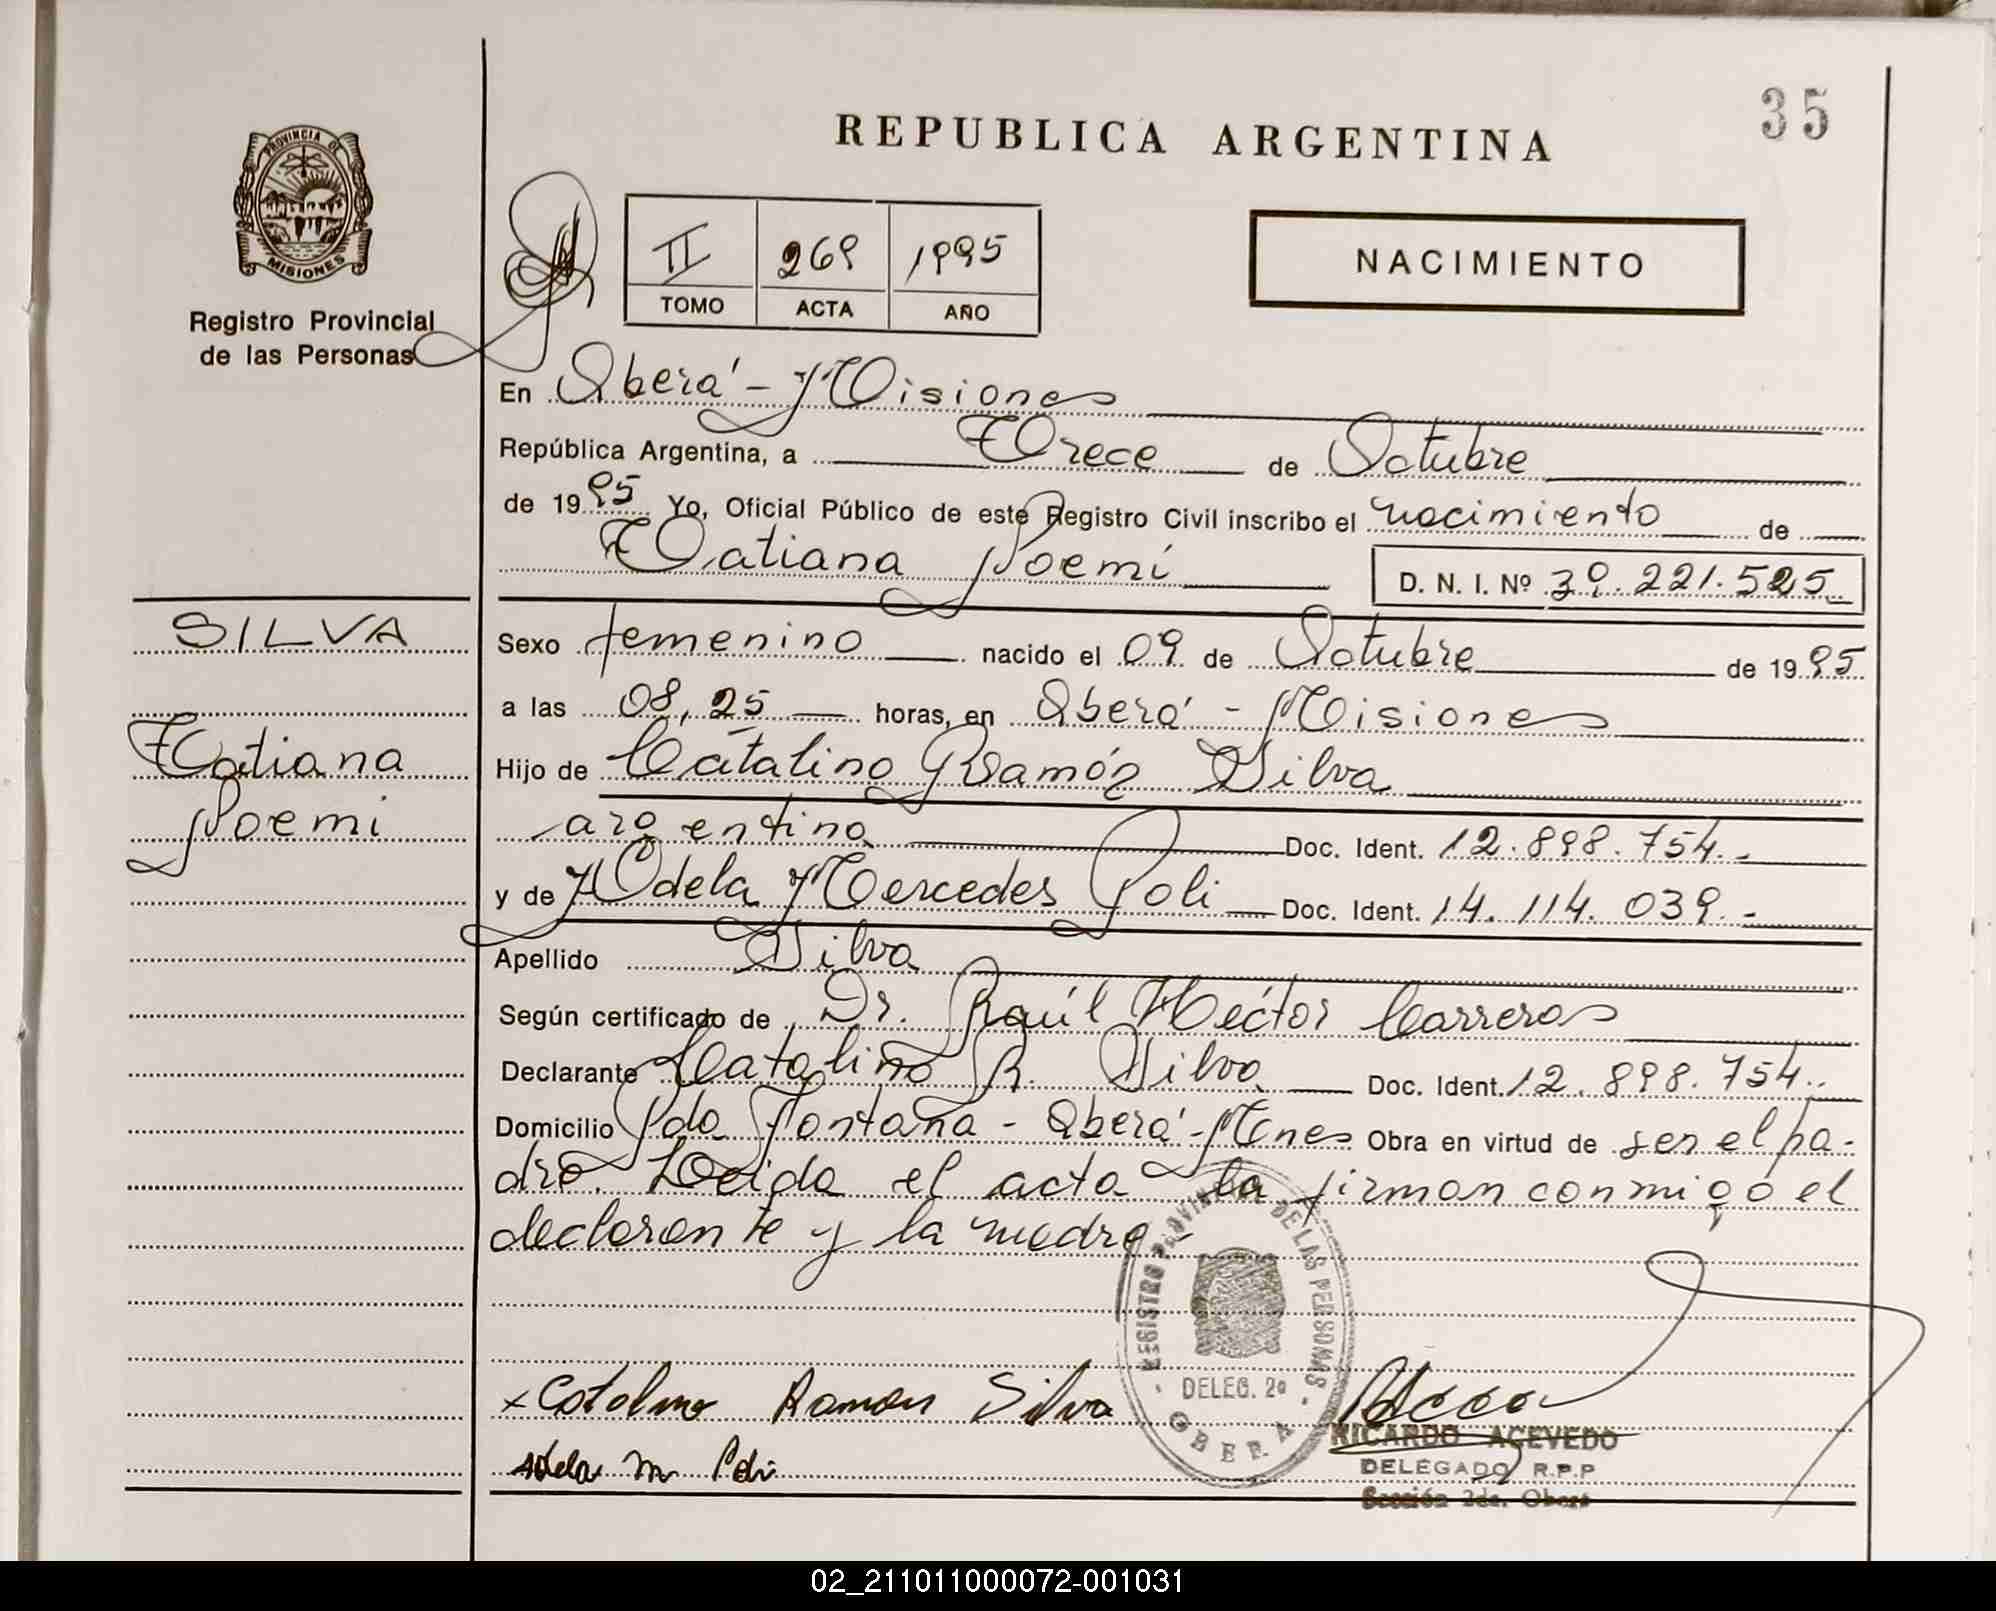 REPUBLICA ARGENTINA
35
PROVINCIA DE
MISIONES
Registro Provincial
de las Personas
II 269 1995
TOMO ACTA AÑO
NACIMIENTO
En Oberá - Misiones
República Argentina, a Trece de Octubre
de 1995 Yo, Oficial Público de este Registro Civil inscribo el nacimiento de
Tatiana Noemi D. N. I. Nº 39.221.525
SILVA
Tatiana
Noemi
Sexo femenino nacido el 09 de Octubre de 1995
a las 08,25 horas, en Oberá - Misiones
Hijo de Catalino Ramón Silva
argentino Doc. Ident. 12.898.754.-
y de Adela Mercedes Poli Doc. Ident. 14.114.039.-
Apellido Silva
Según certificado de Dr. Raúl Héctor Carreras
Declarante Catalino R. Silva Doc. Ident. 12.898.754..
Domicilio Pdo Fontana - Oberá - Mnes Obra en virtud de ser el pa-
dre. Leida el acta la firman conmigo el
declarante y la madre.-
REGISTRO PROVINCIAL DE LAS PERSONAS
DELEG. 2a
OBERA
x Catalino Ramon Silva
Adela M Poli
RICARDO ACEVEDO
DELEGADO R.P.P
Sección 2da. Oberá
02_211011000072-001031